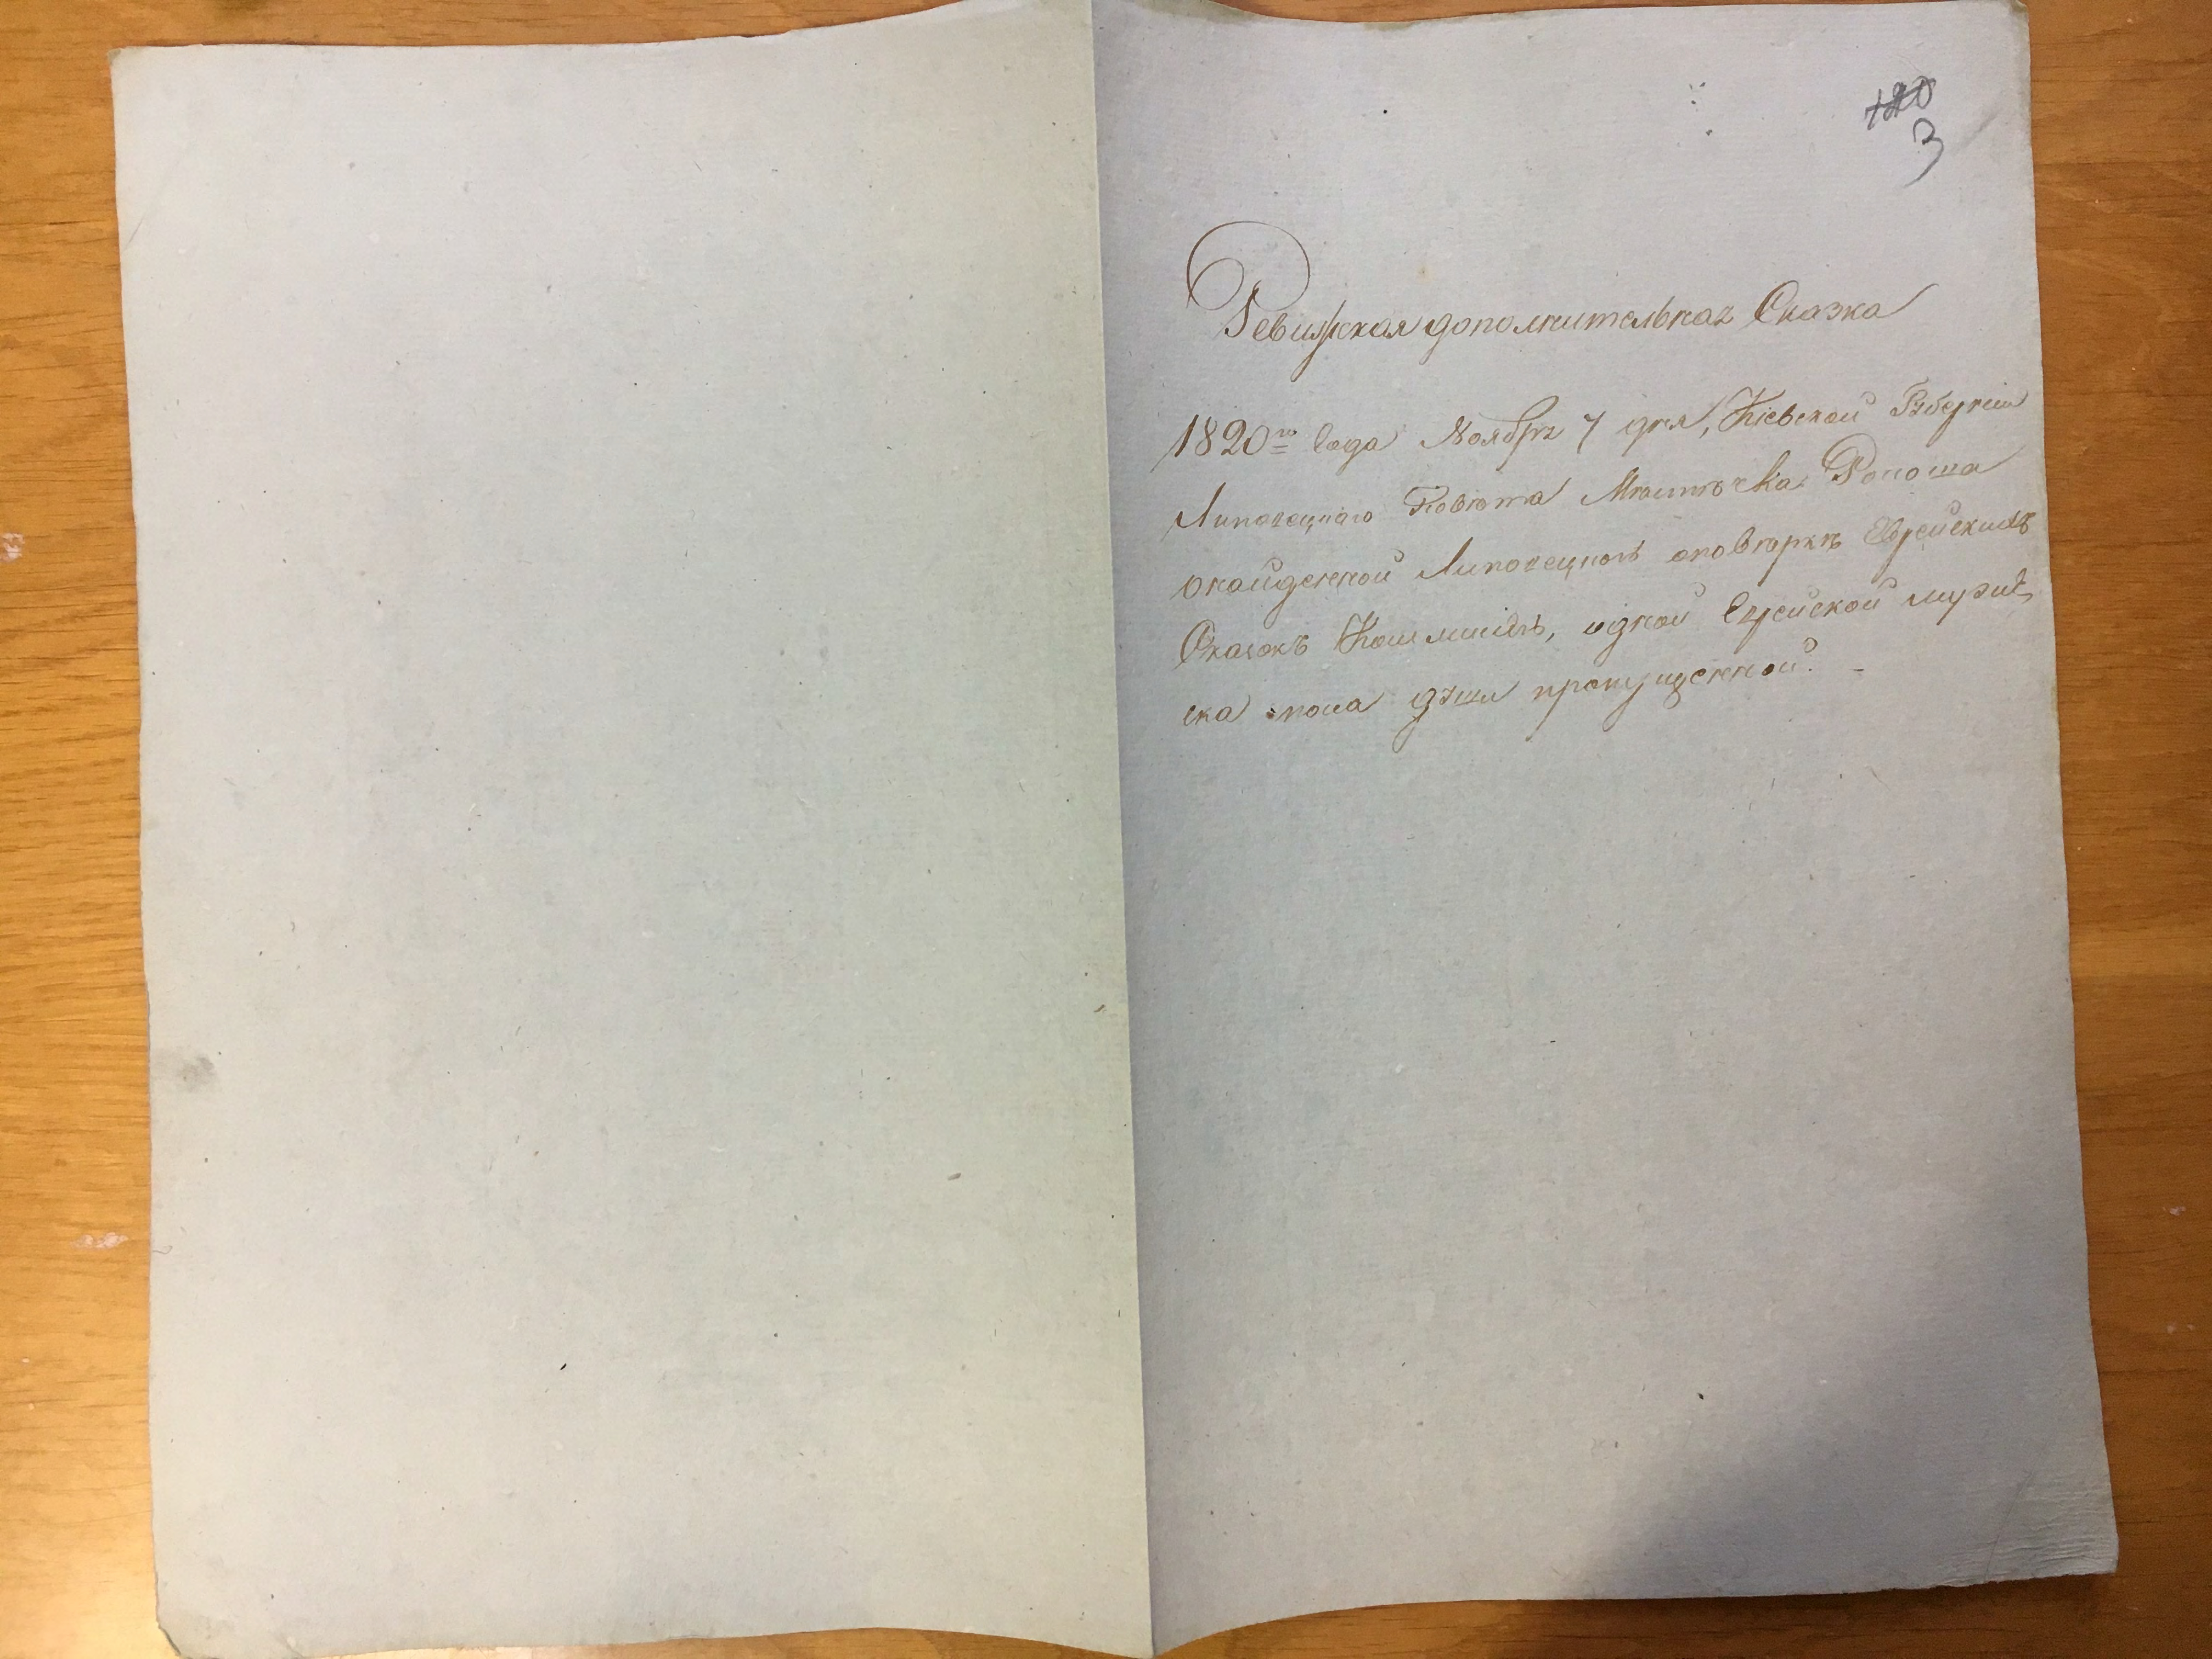 120
3
Ревизская дополнительная Сказка
1820го Года Ноября 7 дня, Кіевской Губерніи
Липовецкаго Повѣта Мѣстѣчка
о найденной Липовецкою по повѣркѣ Еврейскихъ
Сказокъ Коммисіею, одной Еврейской мужес
ка пола души пропущенной. -